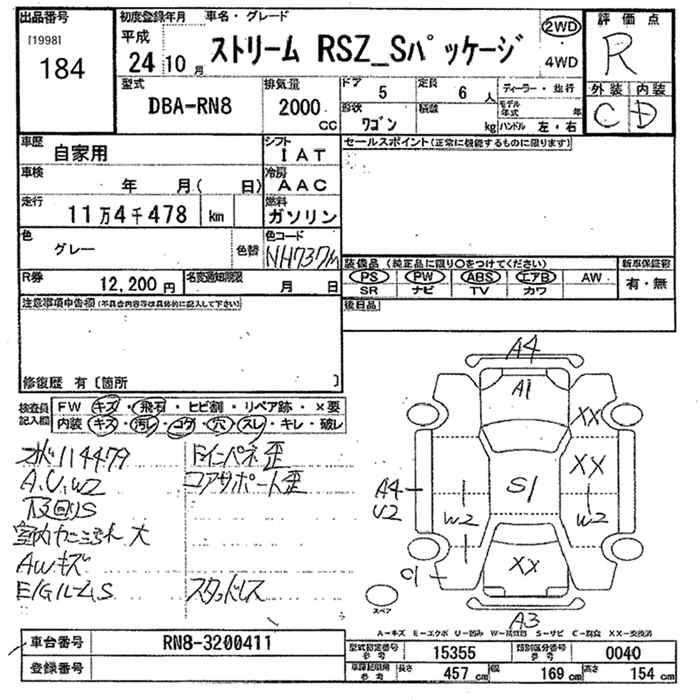 出品番号
[1998]
184
初度登録年月
平成
24 10 月
車名・グレード
ストリーム RSZ_Sパッケージ
2WD
4WD
評価点
R
外装 内装
C D
型式
DBA-RN8
排気量
2000 CC
ドア 5
定員 6 人
形状 ワゴン
積載 kg
ディーラー・並行
モデル年式 年
ハンドル 左・右
車歴
自家用
シフト
IAT
車検
年 月( 日)
冷房
AAC
走行
11万4千478 km
燃料
ガソリン
色
グレー
色替
色コード
NH737M
R券
12,200 円
名変通知期限
月 日
セールスポイント(正常に機能するものに限ります)
装備品(純正品に限り○をつけてください)
PS PW ABS エアB AW
SR ナビ TV カワ
新車保証書
有・無
後日品
注意事項申告欄(不具合内容等は具体的に記入して下さい)
修復歴 有〔箇所 〕
検査員記入欄
FW キズ・飛石・ヒビ割・リペア跡・×要
内装 キズ・汚レ・コゲ・穴・スレ・キレ・破レ
114479
A.U.W2
S
大
AWキズ
E/GルームS
インパネ歪
コアサポート歪
スタッドレス
A4
A1
XX
XX
S1
A4
U2
W2
W2
XX
A3
スペア
A-キズ E-エクボ U-凹み W-補修跡 S-サビ C-腐食 XX-交換済
車台番号
RN8-3200411
登録番号
型式指定番号 参考
15355
類別区分番号 参考
0040
車検証記載用 参考
長さ 457 cm
幅 169 cm
高さ 154 cm